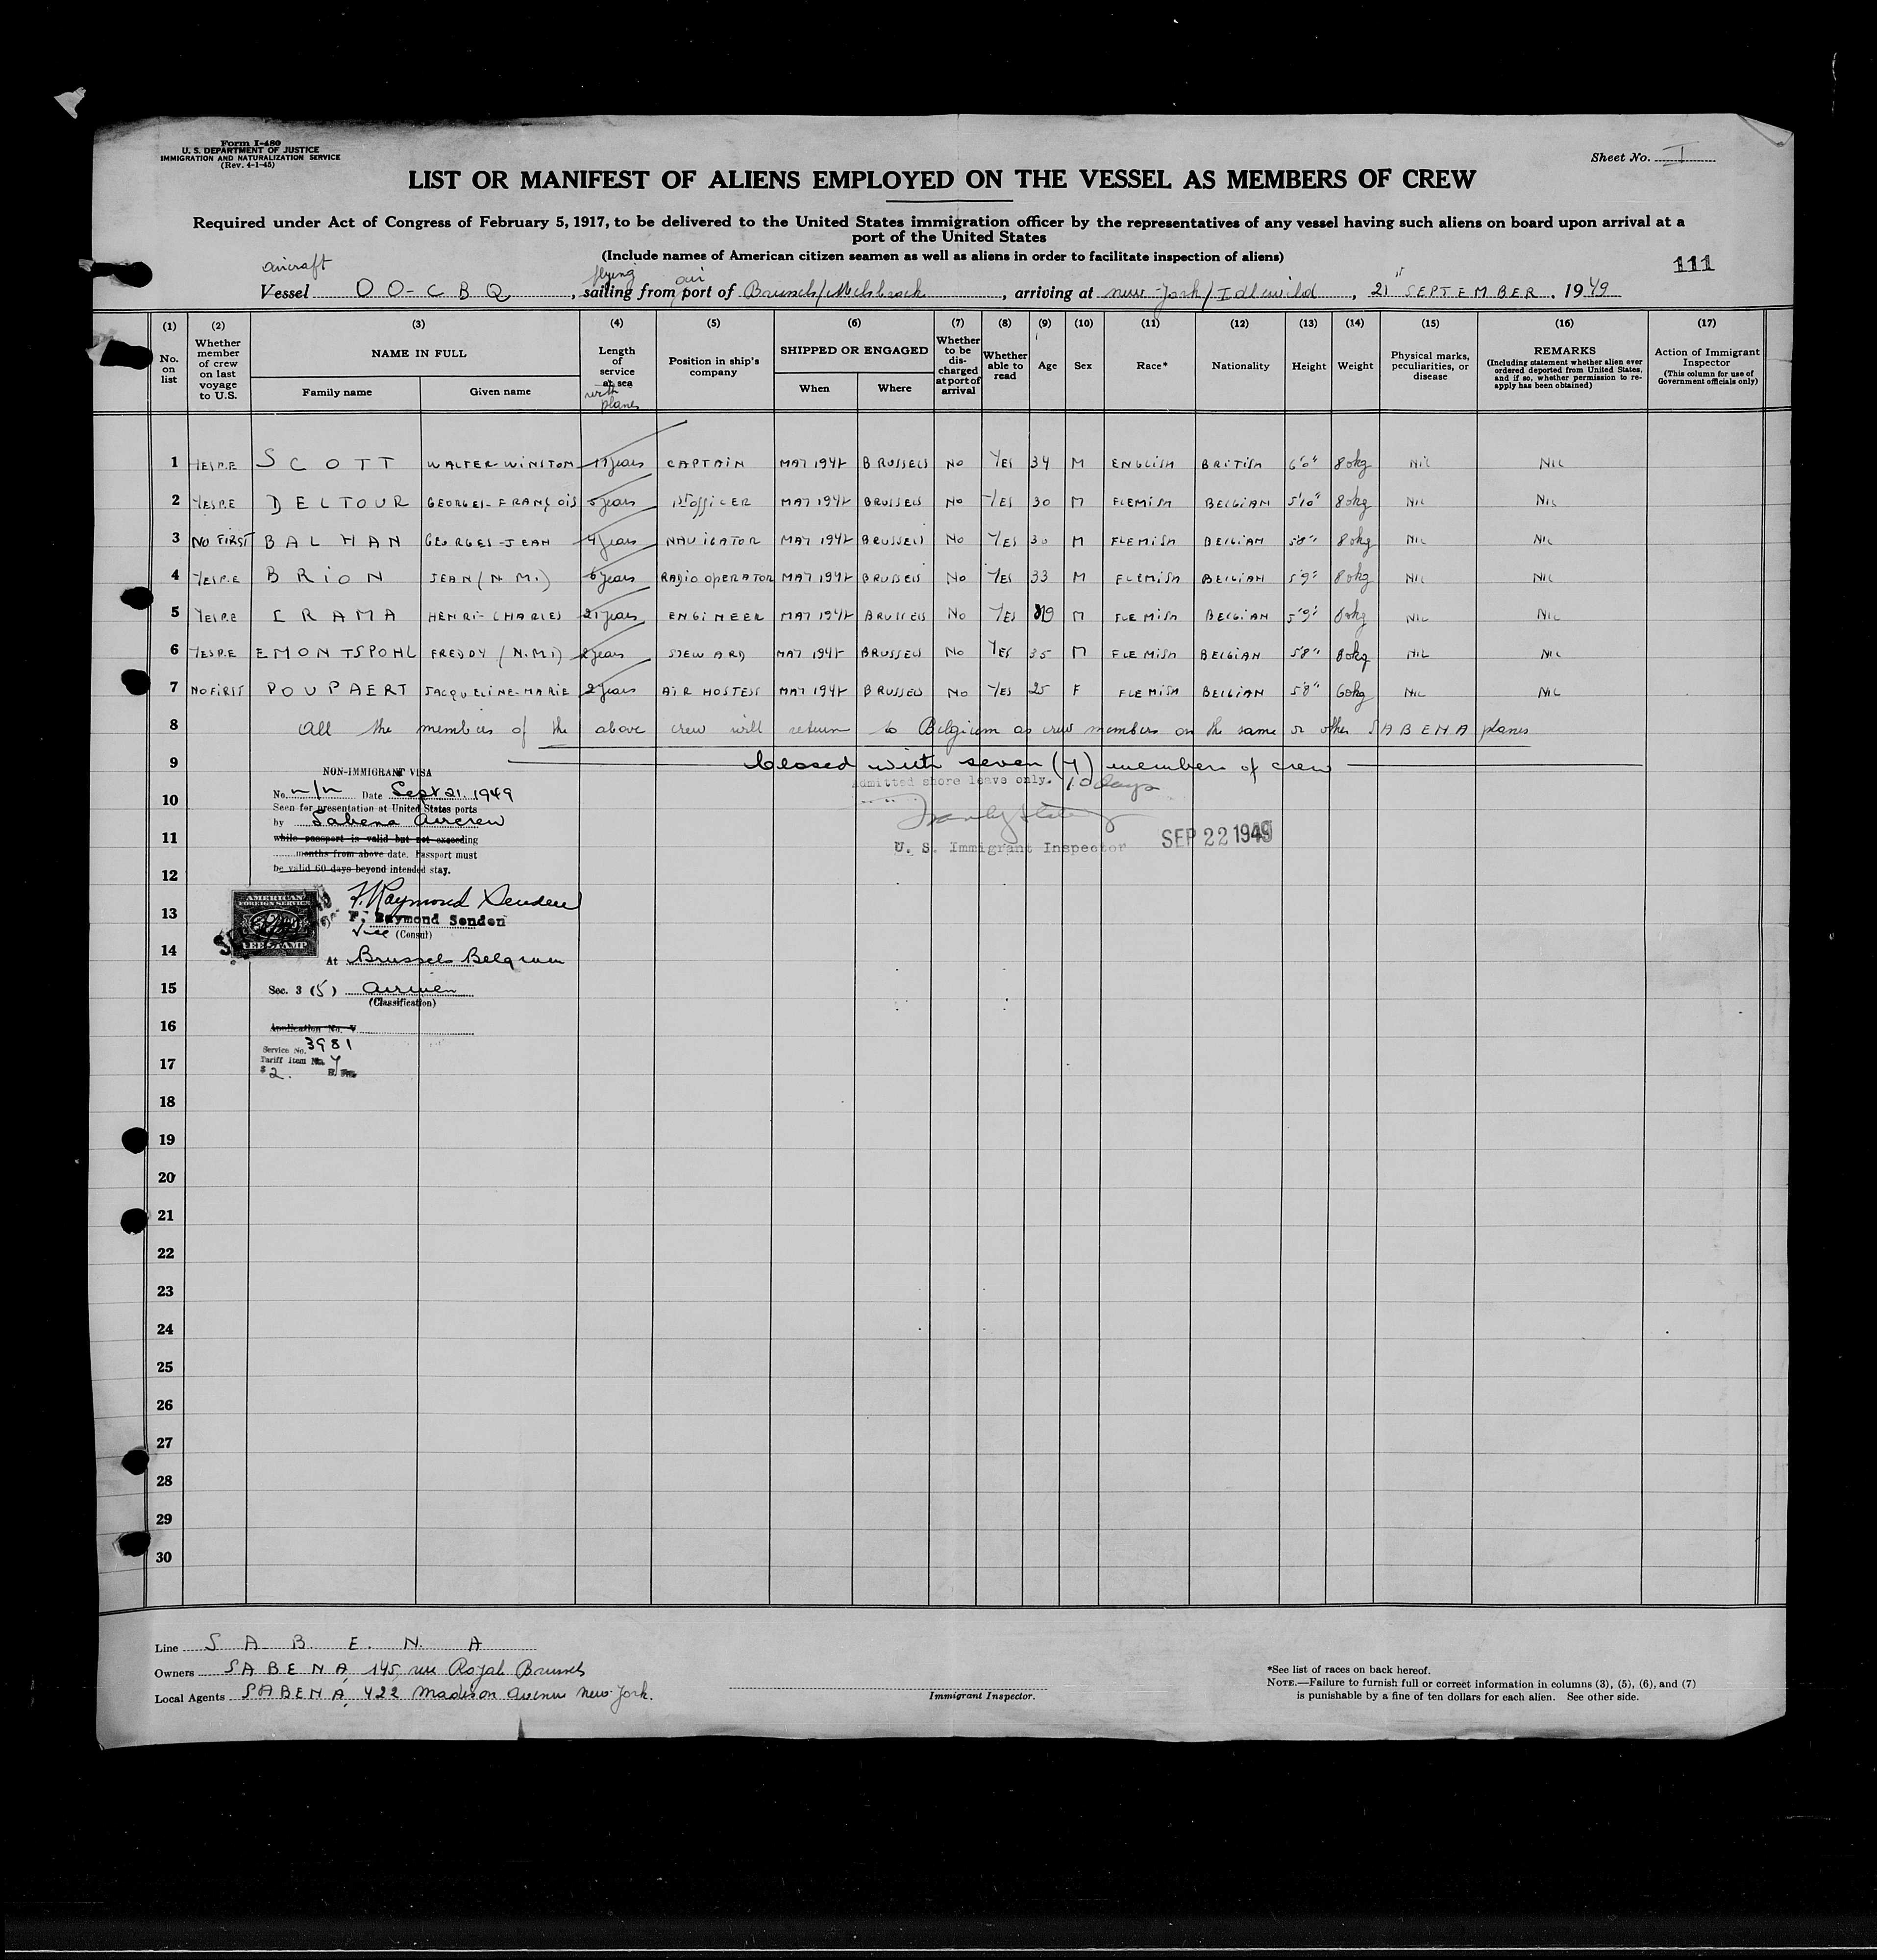 Form I-480
U. S. DEPARTMENT OF JUSTICE
IMMIGRATION AND NATURALIZATION SERVICE
(Rev. 4-1-45)
Sheet No. I
LIST OR MANIFEST OF ALIENS EMPLOYED ON THE VESSEL AS MEMBERS OF CREW
Required under Act of Congress of February 5, 1917, to be delivered to the United States immigration officer by the representatives of any vessel having such aliens on board upon arrival at a
port of the United States
(Include names of American citizen seamen as well as aliens in order to facilitate inspection of aliens)
111
aircraft flying air
Vessel OO-CBQ, sailing from port of Brussels/Melsbroek, arriving at new-York/Idlewild, 21st SEPTEMBER, 1949
(1) (2) (3) (4) (5) (6) (7) (8) (9) (10) (11) (12) (13) (14) (15) (16) (17)
No. on list
Whether member of crew on last voyage to U.S.
NAME IN FULL
Family name
Given name
Length of service at sea
with planes
Position in ship's company
SHIPPED OR ENGAGED
When
Where
Whether to be discharged at port of arrival
Whether able to read
Age
Sex
Race*
Nationality
Height
Weight
Physical marks, peculiarities, or disease
REMARKS
(Including statement whether alien ever ordered deported from United States, and if so, whether permission to reapply has been obtained)
Action of Immigrant Inspector
(This column for use of Government officials only)
1 YES P.E SCOTT WALTER-WINSTON years CAPTAIN MAY BRUSSELS NO YES 34 M ENGLISH BRITISH 6'0" 80kg NIL NIL
2 YES P.E DELTOUR GEORGES-FRANÇOIS years 1st OFFICER MAY BRUSSELS NO YES 30 M FLEMISH BELGIAN 5'10" 80kg NIL NIL
3 NO FIRST BALMAN GEORGES-JEAN 4 years NAVIGATOR MAY BRUSSELS NO YES 30 M FLEMISH BELGIAN 5'8" 80kg NIL NIL
4 YES P.E BRION JEAN (N.M.) 6 years RADIO OPERATOR MAY BRUSSELS NO YES 33 M FLEMISH BELGIAN 5'9" 80kg NIL NIL
5 YES P.E CRAMA HENRI-CHARLES years ENGINEER MAY BRUSSELS NO YES M FLEMISH BELGIAN 5'9" 80kg NIL NIL
6 YES P.E EMONTSPOHL FREDDY (N.M.I) 2 years STEWARD MAY BRUSSELS NO YES 35 M FLEMISH BELGIAN 5'8" 80kg NIL NIL
7 NO FIRST POUPAERT JACQUELINE-MARIE 2 years AIR HOSTESS MAY BRUSSELS NO YES 25 F FLEMISH BELGIAN 5'8" 60kg NIL NIL
8 All the members of the above crew will return to Belgium as crew members on the same or other SABENA planes
9 Closed with seven (7) members of crew
NON-IMMIGRANT VISA
Admitted shore leave only. 10 days
No. n/n Date Sept 21. 1949
10
Seen for presentation at United States ports
by Sabena Aircrew
11
while passport is valid but not exceeding
U. S. Immigrant Inspector
SEP 22 1949
months from above date. Passport must
be valid 60 days beyond intended stay.
12
F. Raymond Senden
13
F. Raymond Senden
AMERICAN
FOREIGN SERVICE
FEE STAMP
Vice (Consul)
14
At Brussels Belgium
15
Sec. 3 (5) airmen
(Classification)
16
Application No. V
Service No. 3981
17
Tariff Item No. 7
$ 2.
18
19
20
21
22
23
24
25
26
27
28
29
30
Line S.A.B.E.N.A
Owners SABENA, 145, rue Royale Brussels
Local Agents SABENA, 422 Madison avenue New-York.
Immigrant Inspector.
*See list of races on back hereof.
NOTE.—Failure to furnish full or correct information in columns (3), (5), (6), and (7)
is punishable by a fine of ten dollars for each alien. See other side.